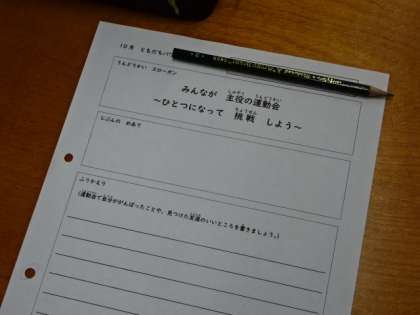 10月 ともだちパワ
うんどうかい スローガン
みんなが 主役の運動会
～ひとつになって 挑戦 しよう～
じぶんの めあて
ふりかえり
(運動会で自分ががんばったことや、見つけた友達のいいところを書きましょう。)